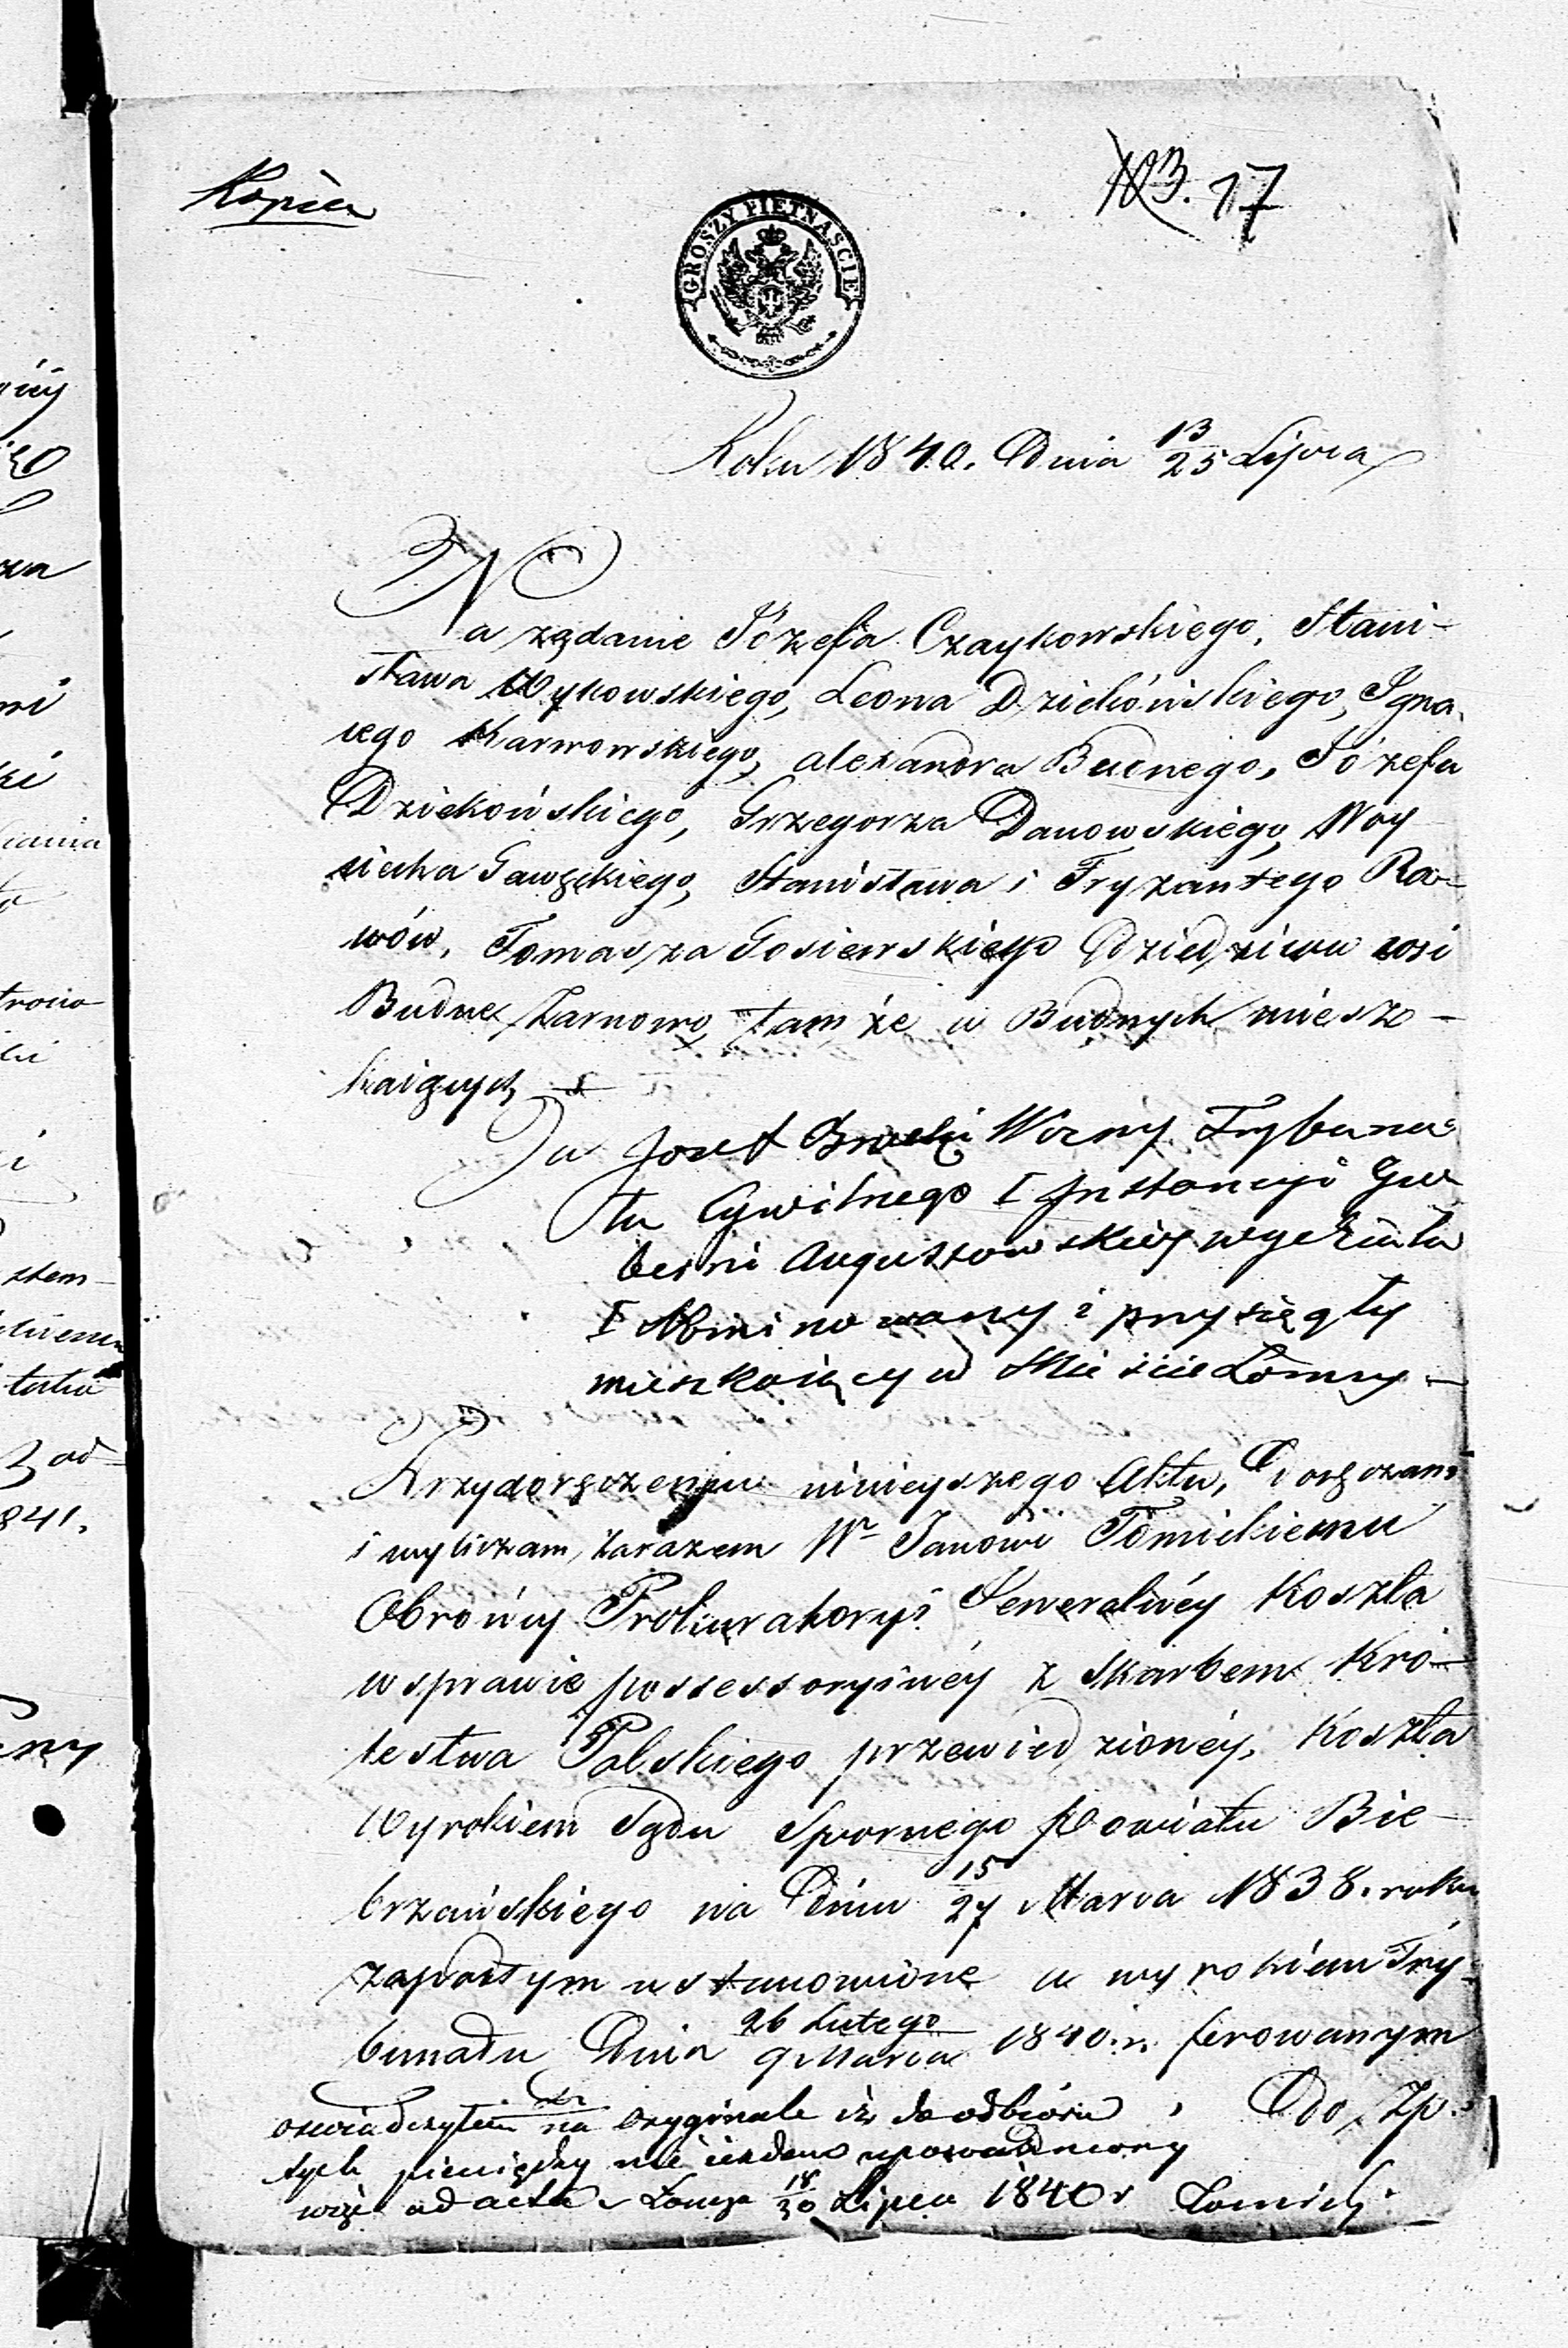 Kopia
123. 17
GROSZY PIĘTNAŚCIE
Roku 1840. Dnia 13/25 Lipca
Na żądanie Józefa Czaykowskiego, Stani-
sława Wykowskiego, Leona Dziekońskiego, Igna-
cego Karwowskiego, Alexandra Budnego, Józefa
Dziekońskiego, Grzegorza Danowskiego, Woy
ciecha Gawęckiego, Stanisława i Fryzantego Ra-
wów, Tomasza Gosiewskiego Dziedziców wsi
Budne Żarnowo, tamże w Budnych miesz-
kaiących
Ja Jozef Woźny Trybuna-
łu Cywilnego I Instancyi Gu
berni Augustowskiey wydziału
I Nominowany i przysięgły
mieszkaiący w Mieście Łomży
Przydoręczeniu ninieyszego Aktu, Doręczam
i wyliczam, zarazem Wr Janowi Tomickiemu
Obrońcy Prokuratoryi Generalnéy Koszta
w sprawie possessoryinéy z Skarbem Kró-
lestwa Polskiego przewiedzionéy, Koszta
Wyrokiem Sądu Spornego Powiatu Bie-
brzańskiego na Dniu 15/27 Marca 1838. roku
zapadłym ustanowione a wyrokiem Try-
bunału Dnia 26 Lutego/9 Marca 1840. r. ferowanym
oswiadczyłem na oryginale iż do odbioru Do Zp.
tych pieniędzy nie iestem upoważniony
więc ad acta Łomża 18/30 Lipca 1840 r Tomicki